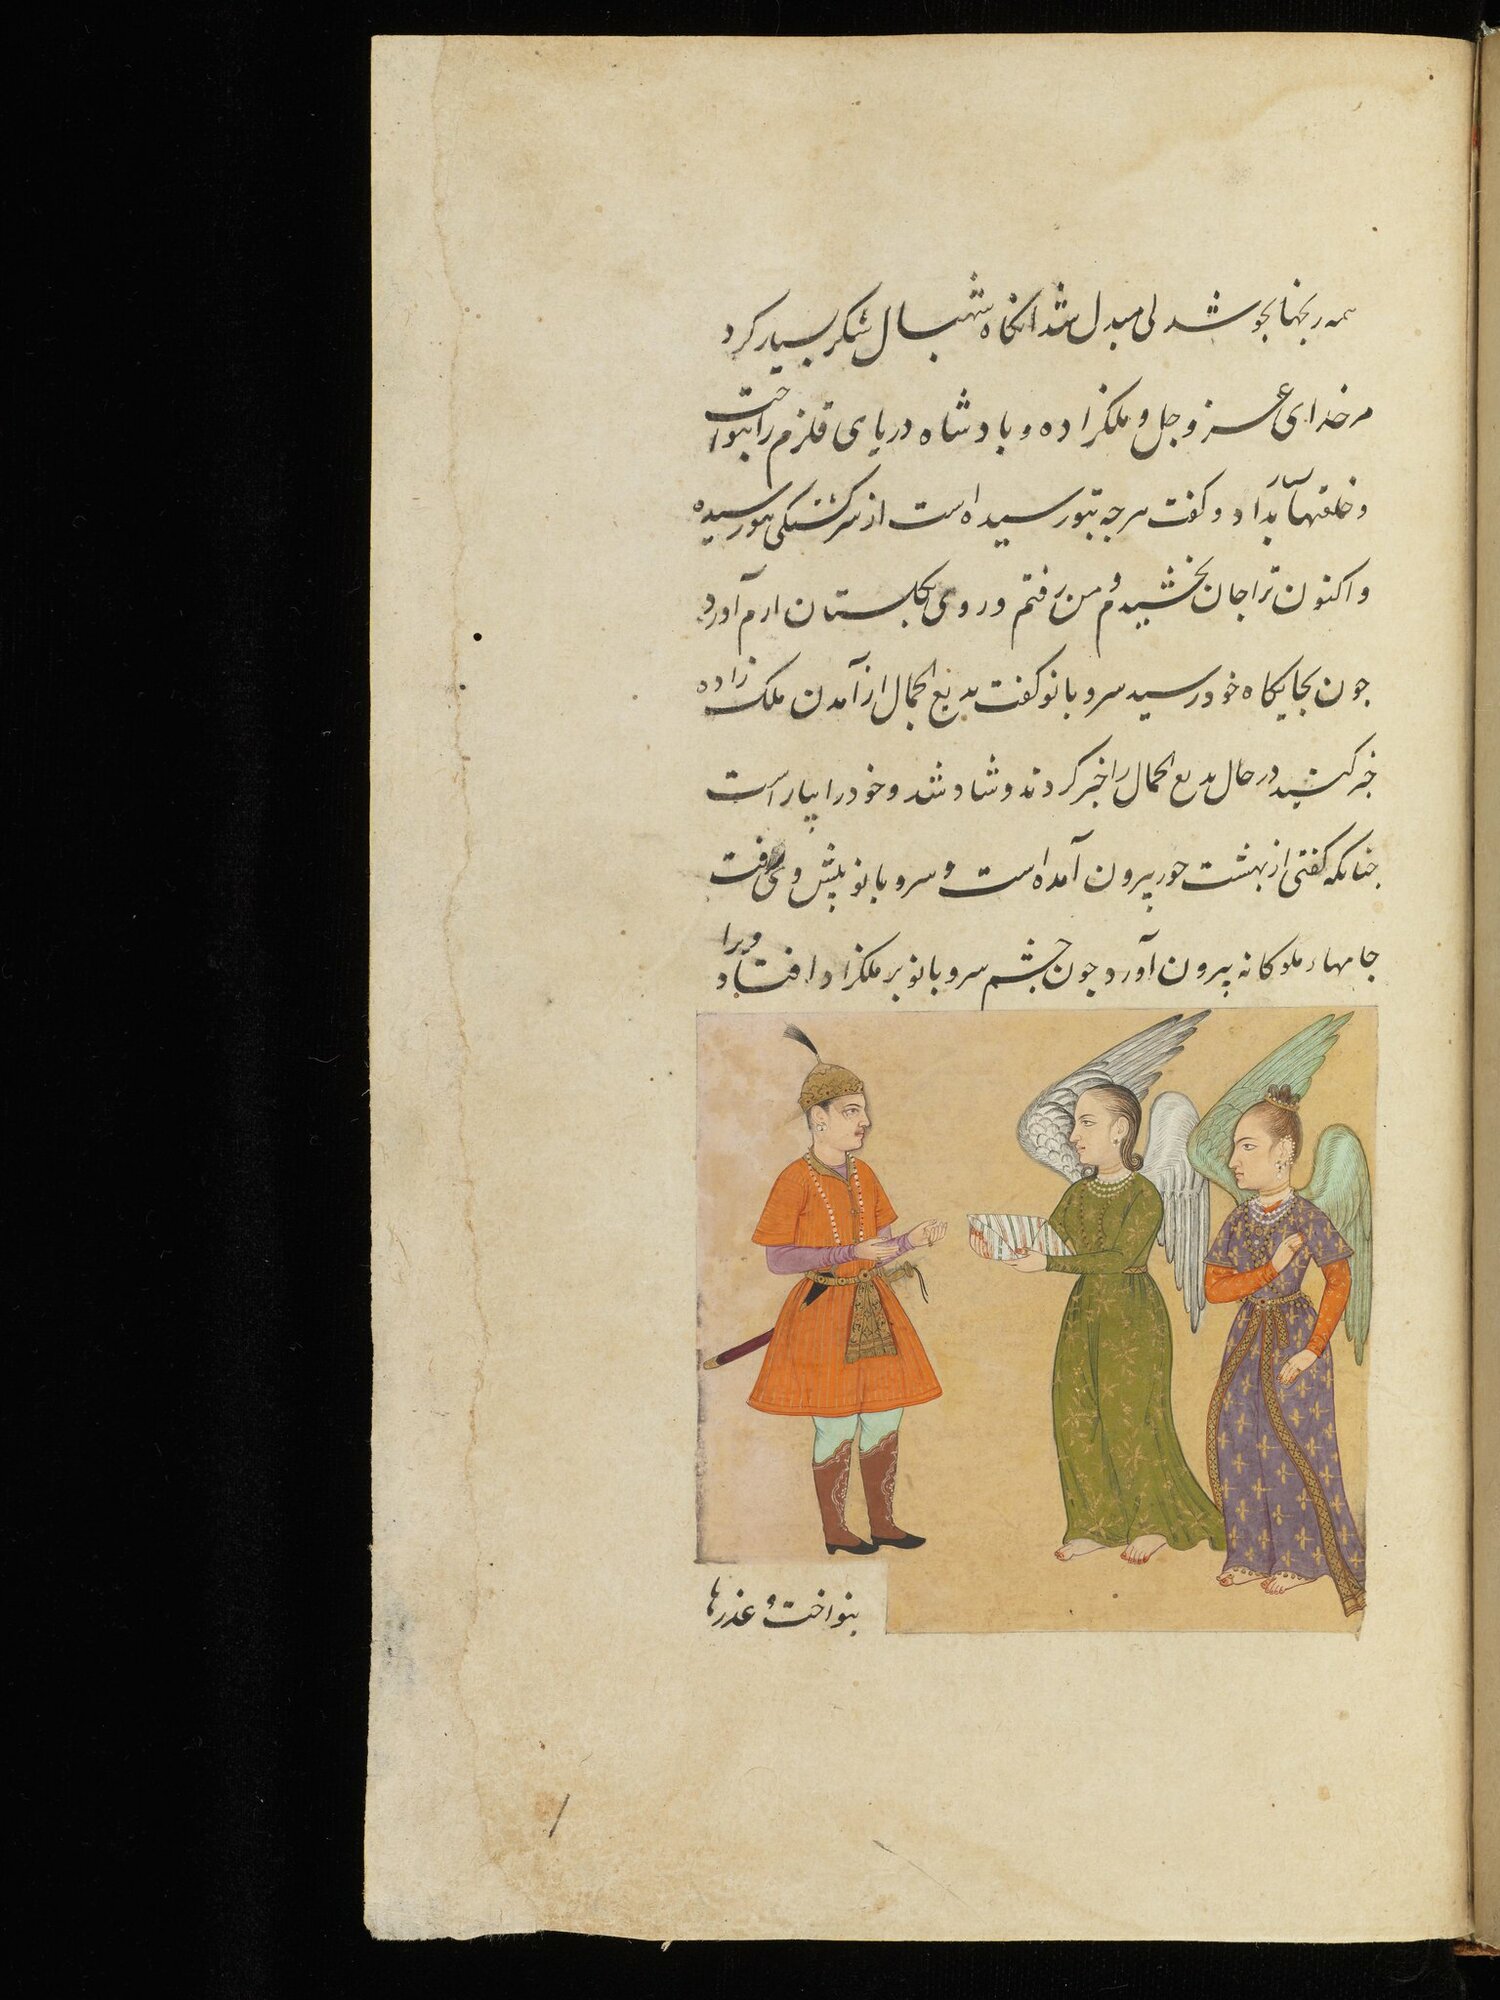 همه رنجها بخوشدلی مبدل شد انکاه شهبال شکر بسیار کرد
مر خدای عز و جل و ملکزاده و بادشاه دریای قلزم را بنواخت
و خلقتها بسیار بداد و کفت هرجه بتو رسیده است از سرکشتکی بتو رسیده
و اکنون ترا جان بخشیدم و من رفتم و روی بکلستان ارم آورد
جون بجایکاه خود رسید سروبانو کفت بدیع الجمال از آمدن ملک زاده
خبر کنید در حال بدیع الجمال را خبر کردند و شاد شد و خود را بیاراست
جنانکه کفتی از بهشت حور بیرون آمده است و سروبانو بیش وی رفت
جامهاء ملوکانه بیرون آورد جون جشم سروبانو بر ملکزاد افتاد ویرا
بنواخت و عذرها